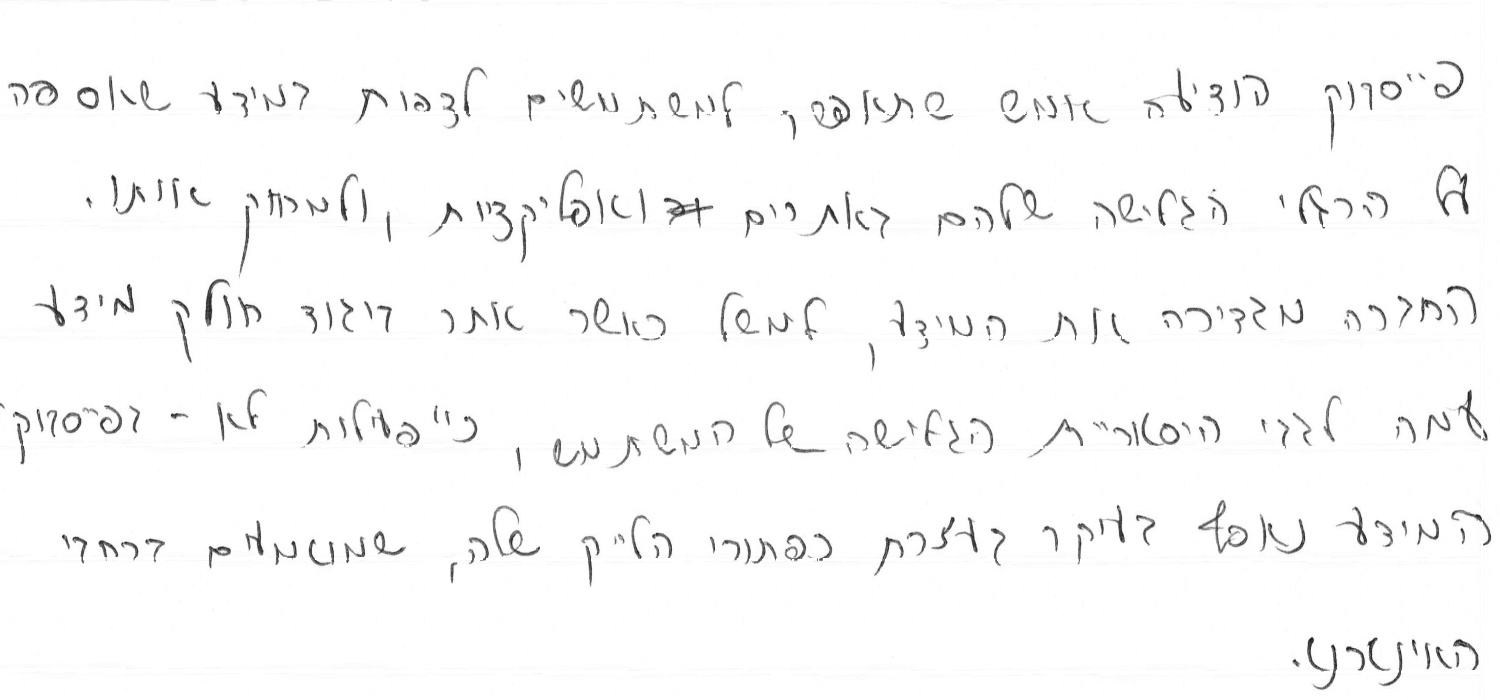 פייסבוק הודיעה אמש שתאפשר למשתמשים לצפות במידע שאספה
על הרגלי הגלישה שלהם באתרים ואפליקציות, ולמחוק אותו.
החברה מגדירה את המידע, למשל כאשר אתר ביגוד חולק מידע
עמה לגבי היסטוריית הגלישה של המשתמש, כ"פעילות לא - בפייסבוק"
המידע נאסף בעיקר בעזרת כפתורי הלייק שלה, שמוטמעים ברחבי
האינטרנט.